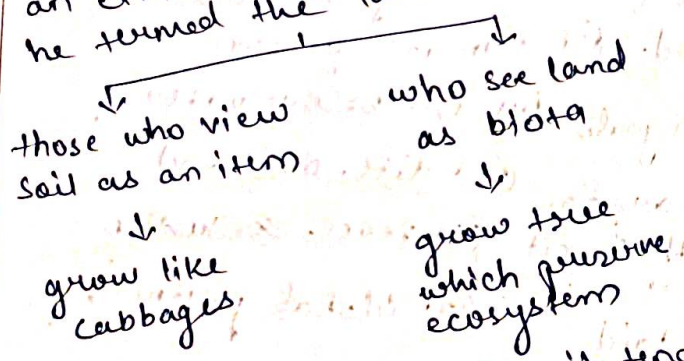 an
he termed the
those who view
soil as an item
↓
grow like
cabbages.
who see land
as biota
↓
grow tree
which preserve
ecosystem